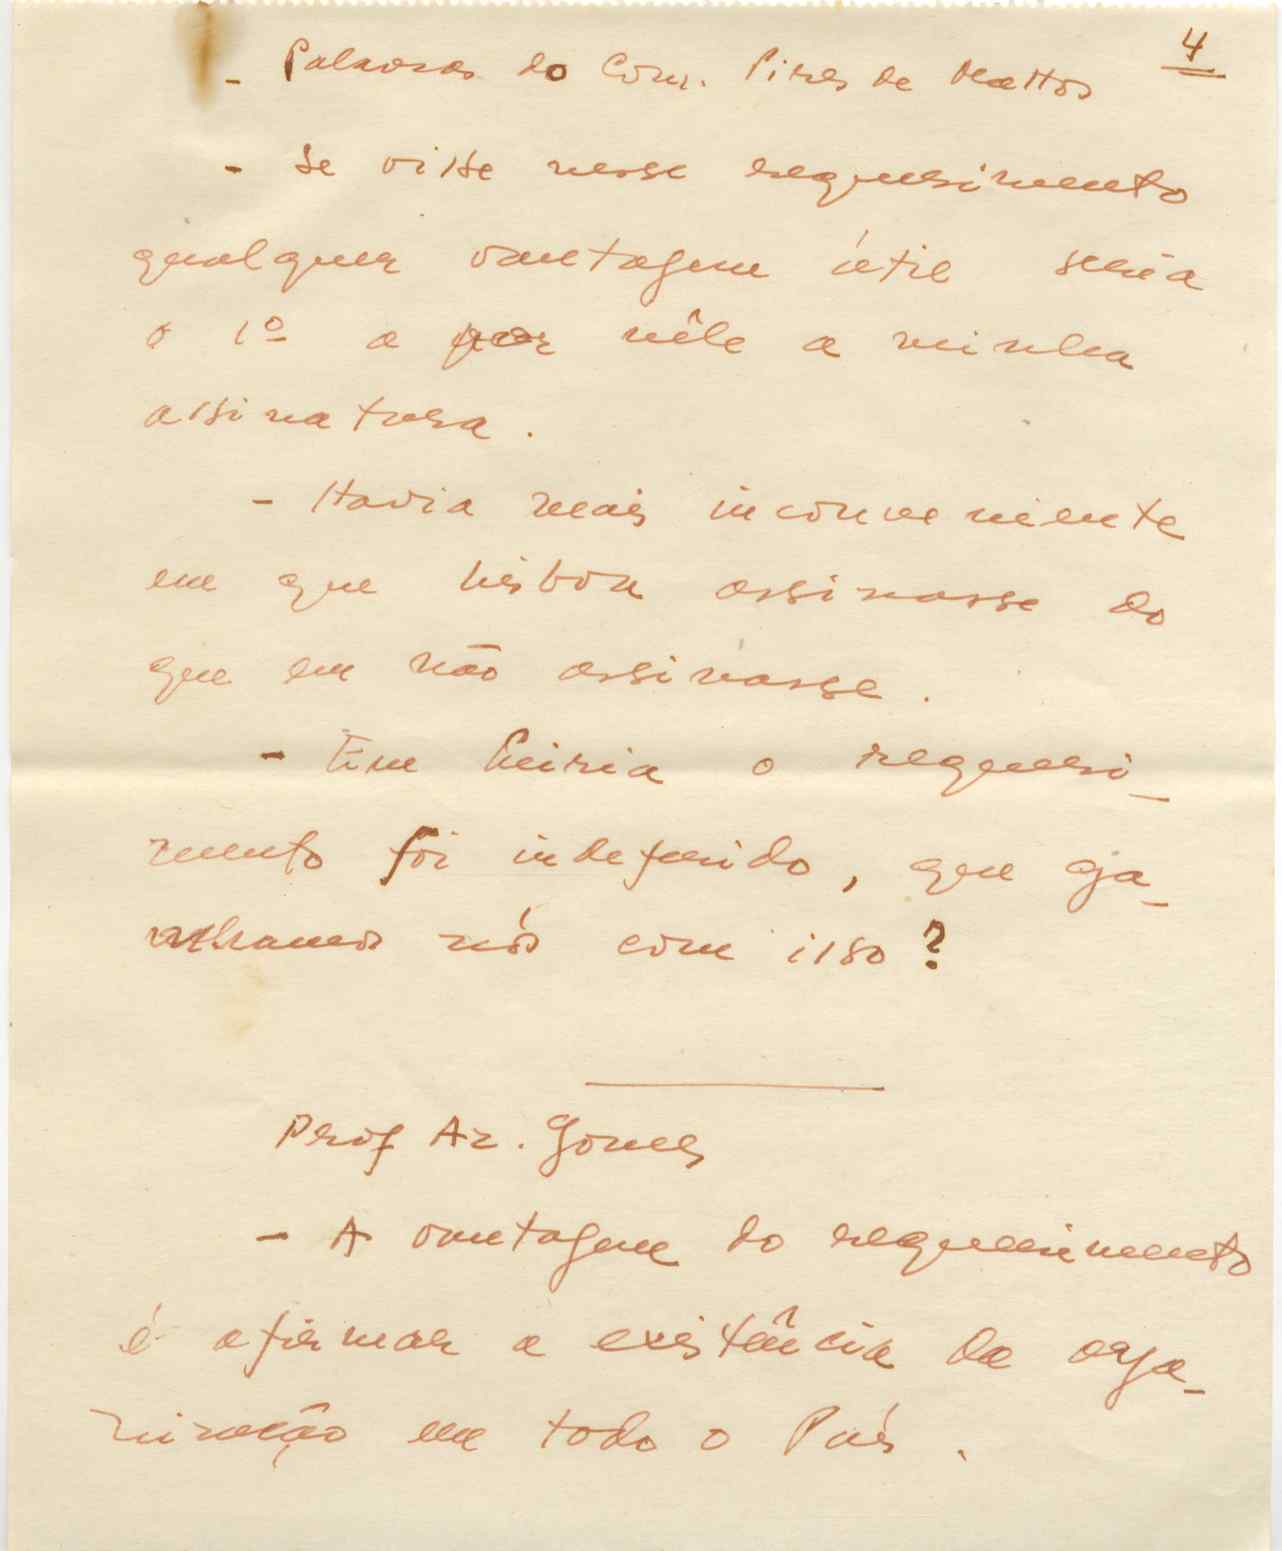 4
- Palavras do Com. Pires de Mattos
- Se visse nesse requerimento
qualquer vantagem útil seria
o 1º a pôr nêle a minha
assinatura.
- Havia mais inconveniente
em que Lisboa assinasse do
que em não assinasse.
- Em Leiria o requeri-
mento foi indeferido, que ga-
nhamos nós com isso?
Prof Az. Gomes
- A vantagem do requerimento
é afirmar a existência da orga-
nização em todo o País.